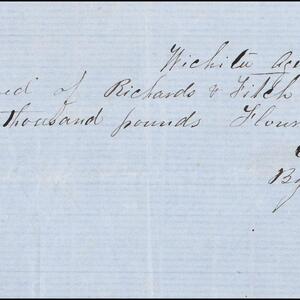 Wichita Agency
ved of Richards & Fitch
thousand pounds Flour
By